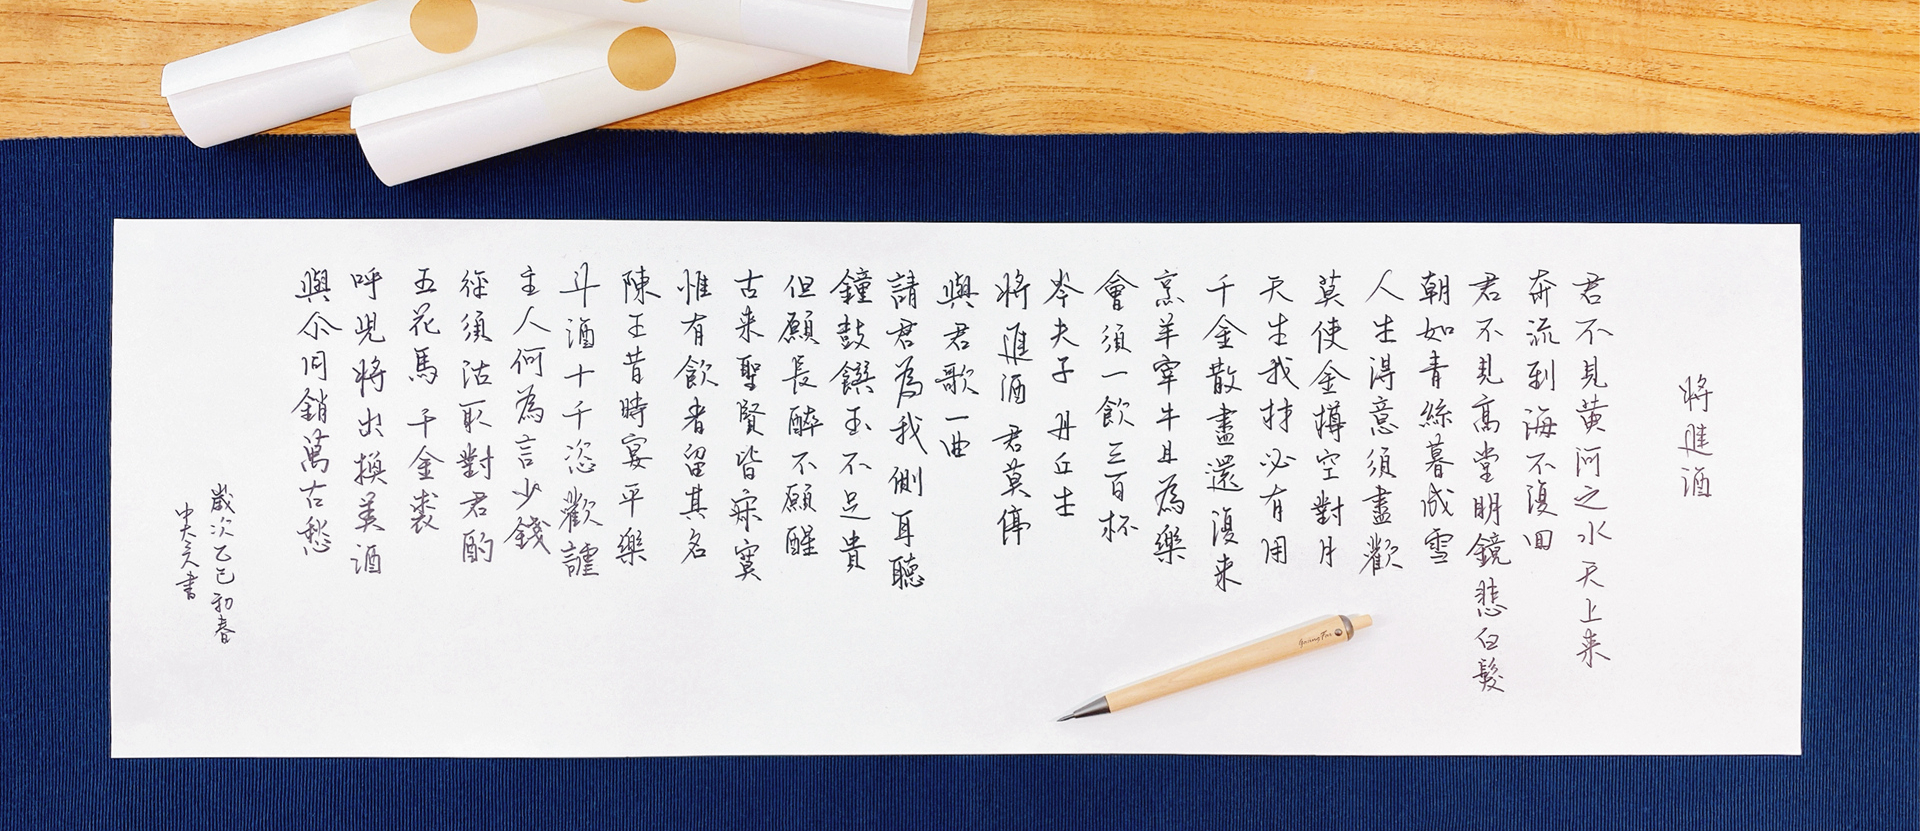 將進酒
君不見黃河之水天上来
奔流到海不復回
君不見高堂明鏡悲白髮
朝如青絲暮成雪
人生得意須盡歡
莫使金樽空對月
天生我材必有用
千金散盡還復来
烹羊宰牛且為樂
會須一飲三百杯
岑夫子 丹丘生
將進酒 君莫停
與君歌一曲
請君為我側耳聽
鐘鼓饌玉不足貴
但願長醉不願醒
古来聖賢皆寂寞
惟有飲者留其名
陳王昔時宴平樂
斗酒十千恣歡謔
主人何為言少錢
徑須沽取對君酌
五花馬 千金裘
呼兒將出換美酒
與尒同銷萬古愁
歲次乙巳初春
書